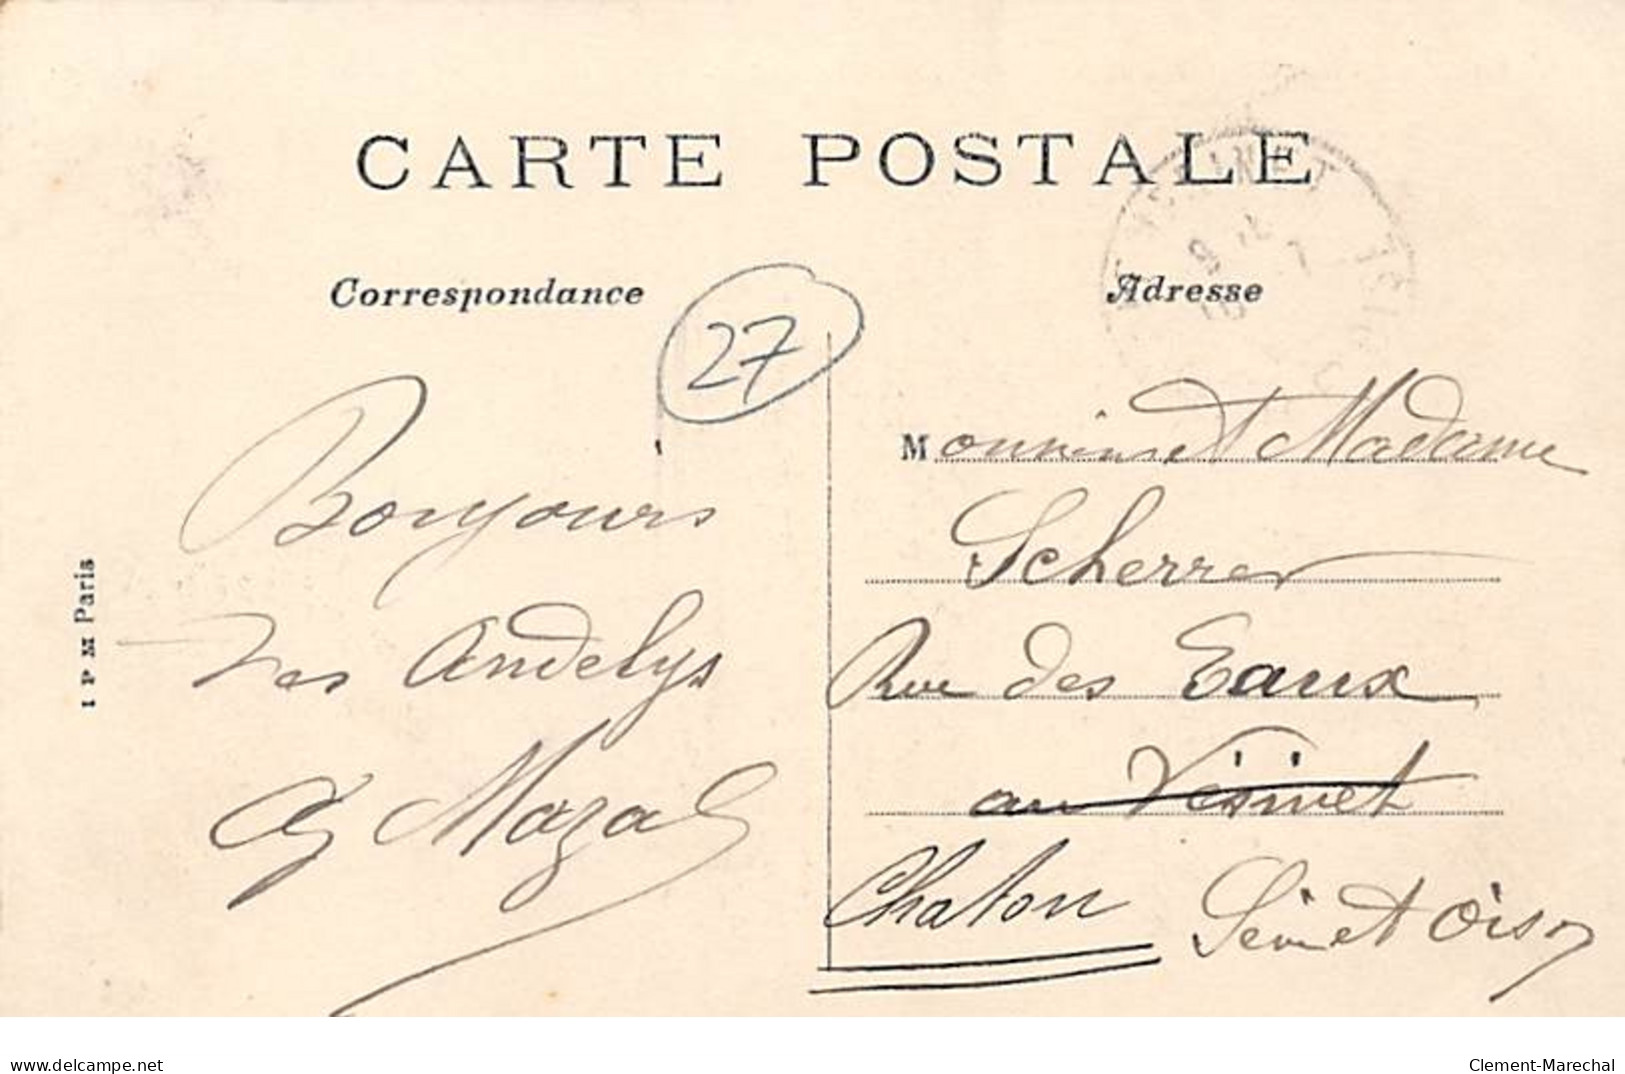 CARTE POSTALE
Correspondance
Adresse
27
Bonjours
des Andelys
Mazad
I P M Paris
Monsieur et Madame
Scherrer
Rue des Eaux
au Vésinet
Chatou
Seine et Oise
delcampe.net
Clement-Marechal